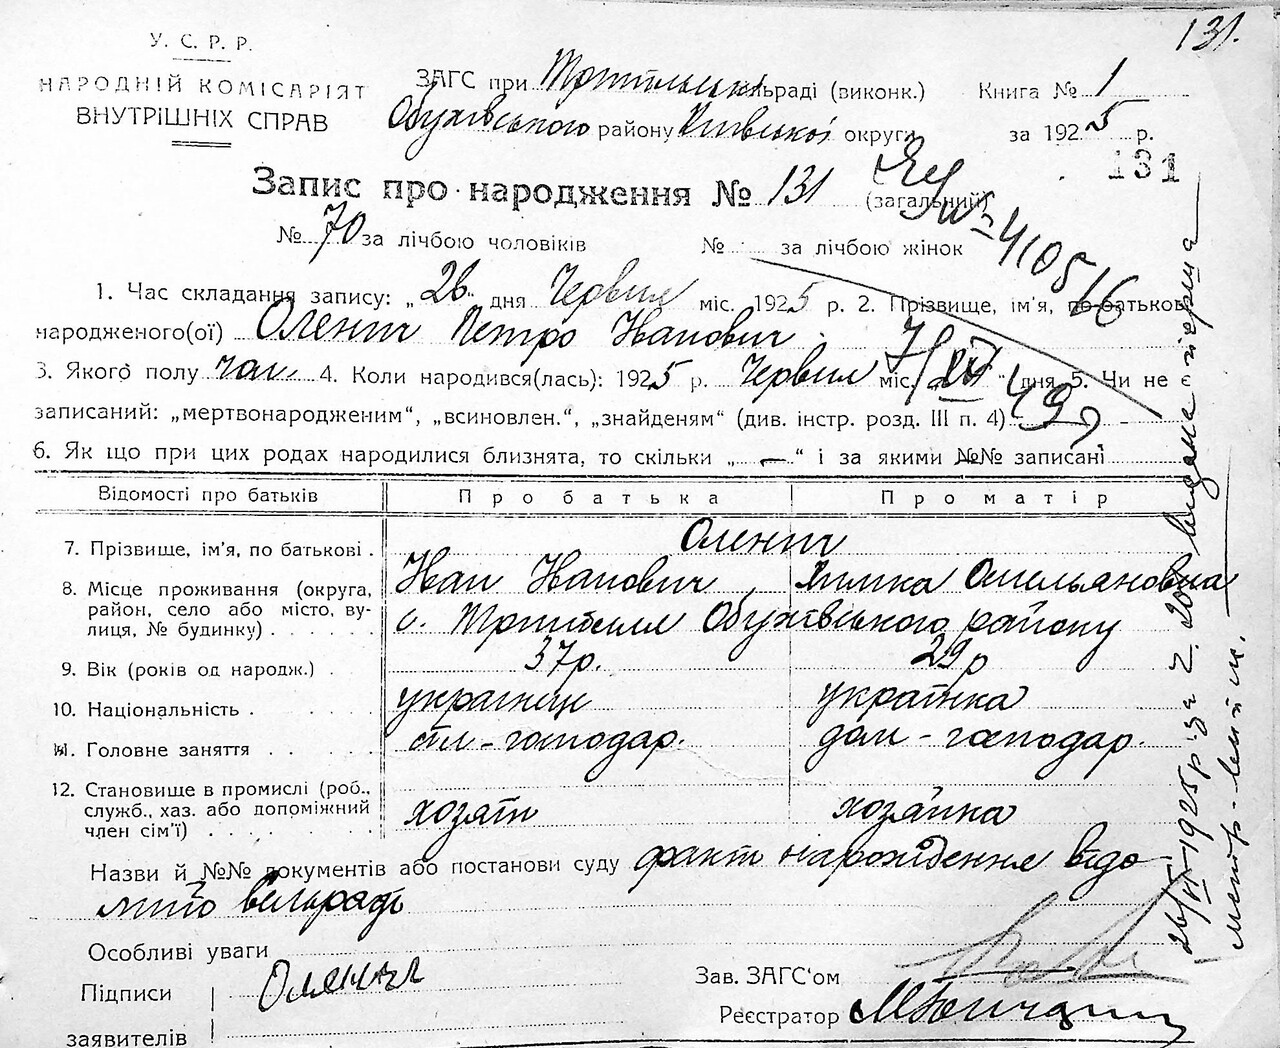 131.
У. С. Р. Р.
НАРОДНІЙ КОМІСАРІЯТ
ВНУТРІШНІХ СПРАВ
ЗАГС при Трипільськ. сільраді (виконк.)
Обухівського району Київської округи
Книга № 1
за 1925 р.
131
Запис про народження № 131 (загальний)
№ 70 за лічбою чоловіків № за лічбою жінок
№ 410516
1. Час складання запису: „26" дня Червня міс. 1925 р. 2. Прізвище, ім'я, по-батькові
народженого(ої) Оленич Петро Іванович
3. Якого полу чол. 4. Коли народився(лась): 1925 р. Червня міс. дня 5. Чи не є
записаний: „мертвонародженим", „всиновлен.", „знайденям" (див. інстр. розд. III п. 4) -
6. Як що при цих родах народилися близнята, то скільки „ — " і за якими №№ записані
Відомості про батьків Про батька Про матір
7. Прізвище, ім'я, по батькові . Оленич
Іван Іванович Химка Омельяновна
8. Місце проживання (округа, район, село або місто, вулиця, № будинку) . . . . . . с. Трипілля Обухівського району
9. Вік (років од народж.) . 37р. 29р
10. Національність . українець українка
11. Головне заняття . . . . . сіл-господар. дом-господар.
12. Становище в промислі (роб., служб., хаз. або допоміжний член сім'ї) . . . . . . хозяїн хозяйка
Назви й №№ документів або постанови суду факт народження відо
мий сільраді
Особливі уваги
Підписи
заявителів
Оленич
Зав. ЗАГС'ом
Реєстратор
26/VI 1925 р. за ч. 20 видана перша